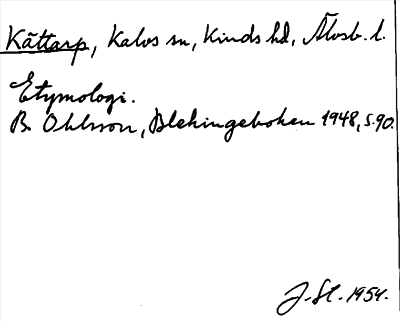 Kättarp, Kalvs sn, Kinds hd, Älvsb. l.
Etymologi.
B. Ohlsson, Blekingeboken 1948, s. 90.
J. Sl. 1954.